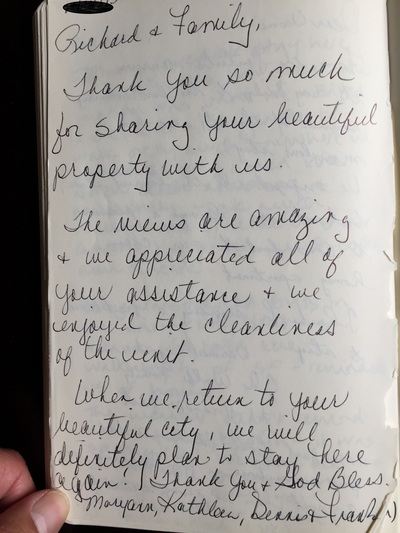 Richard & Family,
Thank You so much
for sharing your beautiful
property with us.
The views are amazing
& we appreciated all of
your assistance & we
enjoyed the cleanliness
of the unit.
When we return to your
beautiful city, we will
definitely plan to stay here
again! Thank You & God Bless.
Maryann, Kathleen, Dennis & Frank :)